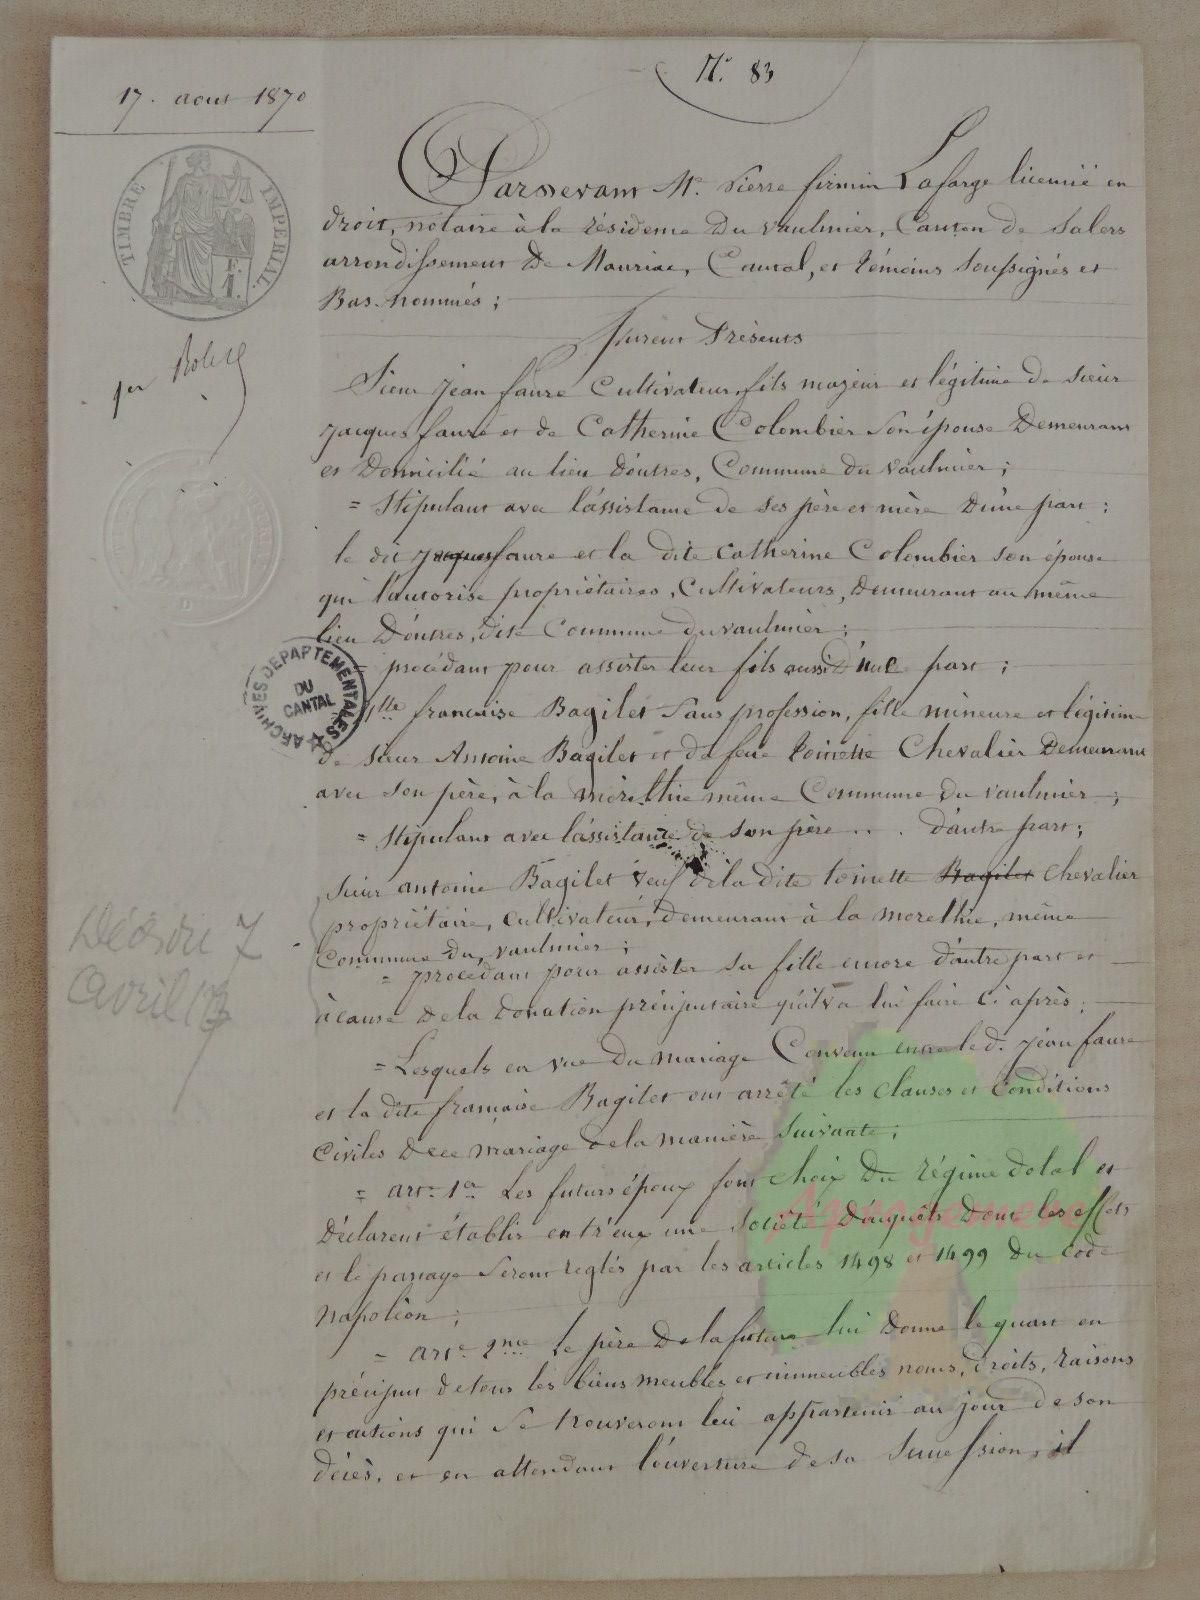 N.° 83
17. aout 1870
TIMBRE IMPERIAL
1er Role
Pardevant Me. Pierre firmin Lafarge licencié en
droit, notaire à la résidence du vaulmier, Canton de Salers
arrondissement de Mauriac, Cantal, et témoins soussignés et
Bas-nommés ;
furent Présents
Sieur jean faure Cultivateur, fils majeur et légitime de sieur
jacques faure et de Catherine Colombier Son épouse Demeurant
et Domicilié au lieu d'outres, Commune du vaulmier ;
= Stipulant avec l'assistance de ses père et mère d'une part ;
le dit jacques faure et la dite Catherine Colombier son épouse
qu'il autorise propriétaires, Cultivateurs, demeurant au même
lieu D'outres, dite Commune du vaulmier ;
procédant pour assister leur fils aussi d'une part ;
ARCHIVES DEPARTEMENTALES DU CANTAL
lle francaise Bagilet Sans profession, fille mineure et légitime
de sieur Antoine Bagilet et de feue toinette Chevalier Demeurant
avec son père, à la morethie même Commune du vaulmier ;
= Stipulant avec l'assistance de son père . . . d'autre part ;
Sieur antoine Bagilet veuf de la dite toinette Bagilet Chevalier
propriétaire, cultivateur, demeurant à la morethie, même
Commune du vaulmier ;
= procédant pour assister sa fille encore d'autre part et
à cause de la donation préciputaire qu'il va lui faire ci après ;
Avril 17
= Lesquels en vue du mariage Convenu entre le d. jean faure
et la dite française Bagilet ont arrêté les clauses et conditions
Civiles de ce mariage de la manière suivante ;
= art. 1er Les futurs époux font choix du régime dotal et
Déclarent établir entr'eux une société d'acquêts dont les effets
et le partage seront reglés par les articles 1498 et 1499 du Code
napoléon ;
= art. 2me Le père de la future lui donne le quart en
préciput de tous les biens meubles et immeubles noms, droits, raisons
et actions qui se trouveront lui appartenir au jour de son
décès, et en attendant l'ouverture de sa succession, il